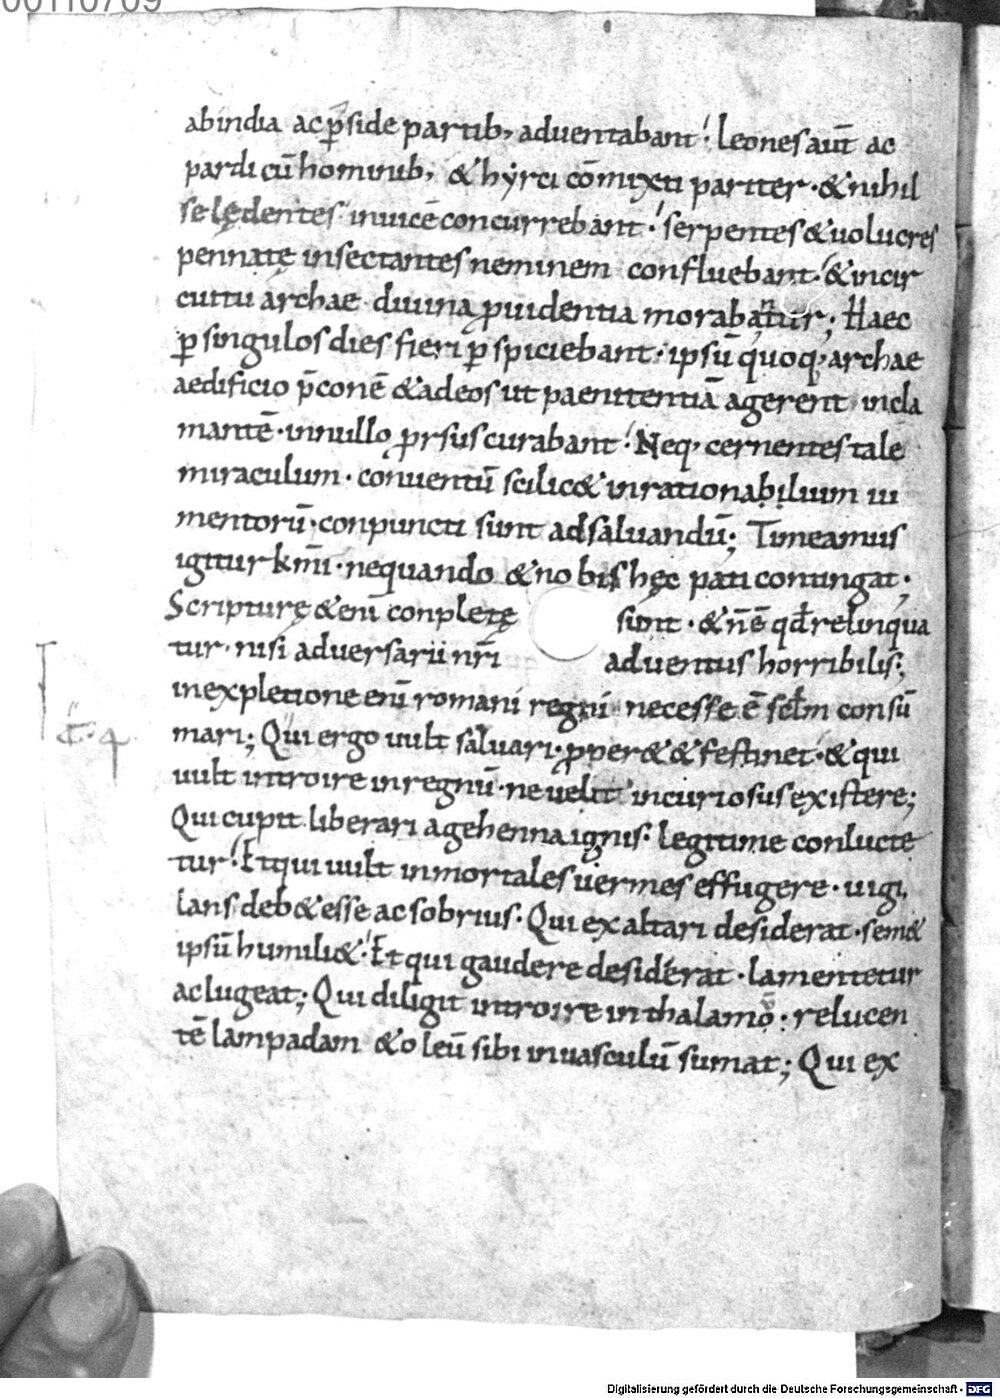 ab india ac p̄side partib; adventabant. leones aut̄ ac
pardi cū hominib; & hẏrci cōmixti pariter. & nihil
se lędentes invicē concurrebant. serpentes & volucres
pennatę insectantes neminem confluebant. & incir
cuitu archae divina ꝓvidentia morabantur; Haec
ꝑ singulos dies fieri ꝑspiciebant. ipsū quoq; archae
aedificio p̄conē & ad eos ut paenitentiā agerent incla
mantē. in nullo ꝓrsus curabant. Neq; cernentes tale
miraculum. conventū scilic& inrationabilium iu
mentorū. conpuncti sunt ad salvandū; Timeamus
igitur km̄i. nequando & nobis hęc pati contingat.
Scripturę & enī conpletę sunt. & n̄ ē qđ relinqua
tur. nisi adversarii nr̄i adventus horribilis;
in expletione enī romani regni necesse ē sclm̄ consū
mari; Qui ergo vult salvari. ꝓper& & festinet. & qui
vult introire in regnū. ne velit incuriosus existere;
Qui cupit liberari a gehenna ignis. legitime conlucte
tur. Et qui vult inmortales vermes effugere. vigi
lans deb& esse ac sobrius. Qui exaltari desiderat. sem&
ipsū humili&. Et qui gaudere desiderat. lamentetur
ac lugeat; Qui diligit introire in thalamō: relucen
tē lampadam & oleū sibi in vasculū sumat; Qui ex
Digitalisierung gefördert durch die Deutsche Forschungsgemeinschaft - DFG